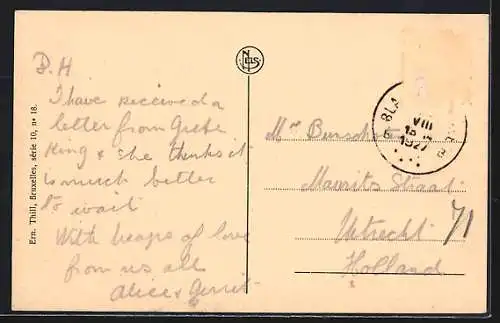 D.H
I have received a
letter from Grete
King & she thinks it
is much better
to wait
With heaps of love
from us all
Alice & Gerrit
Ern. Thill, Bruxelles, série 10, no 18.
NELS
BLA
VIII
1927
Mr
Maurits Straat
71
Utrecht
Holland